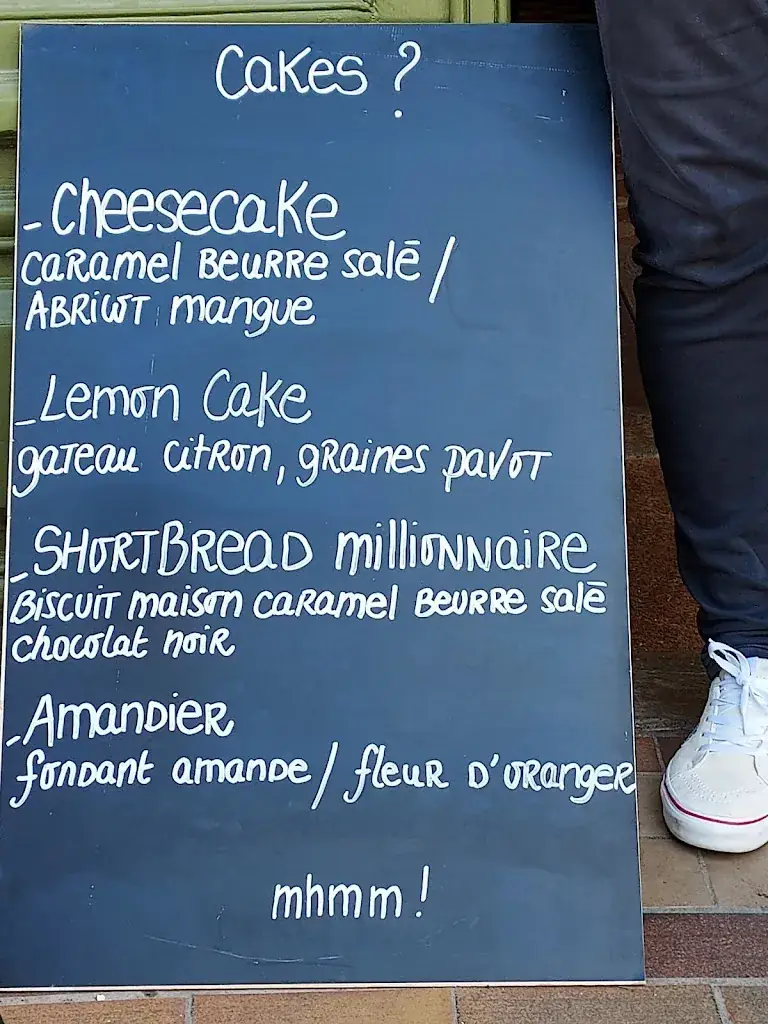 Cakes ?
- Cheesecake
caramel beurre salé /
abricot mangue
- Lemon Cake
gateau citron, graines pavot
- Shortbread millionnaire
Biscuit maison caramel beurre salé
chocolat noir
- Amandier
fondant amande / fleur d'oranger
mhmm !